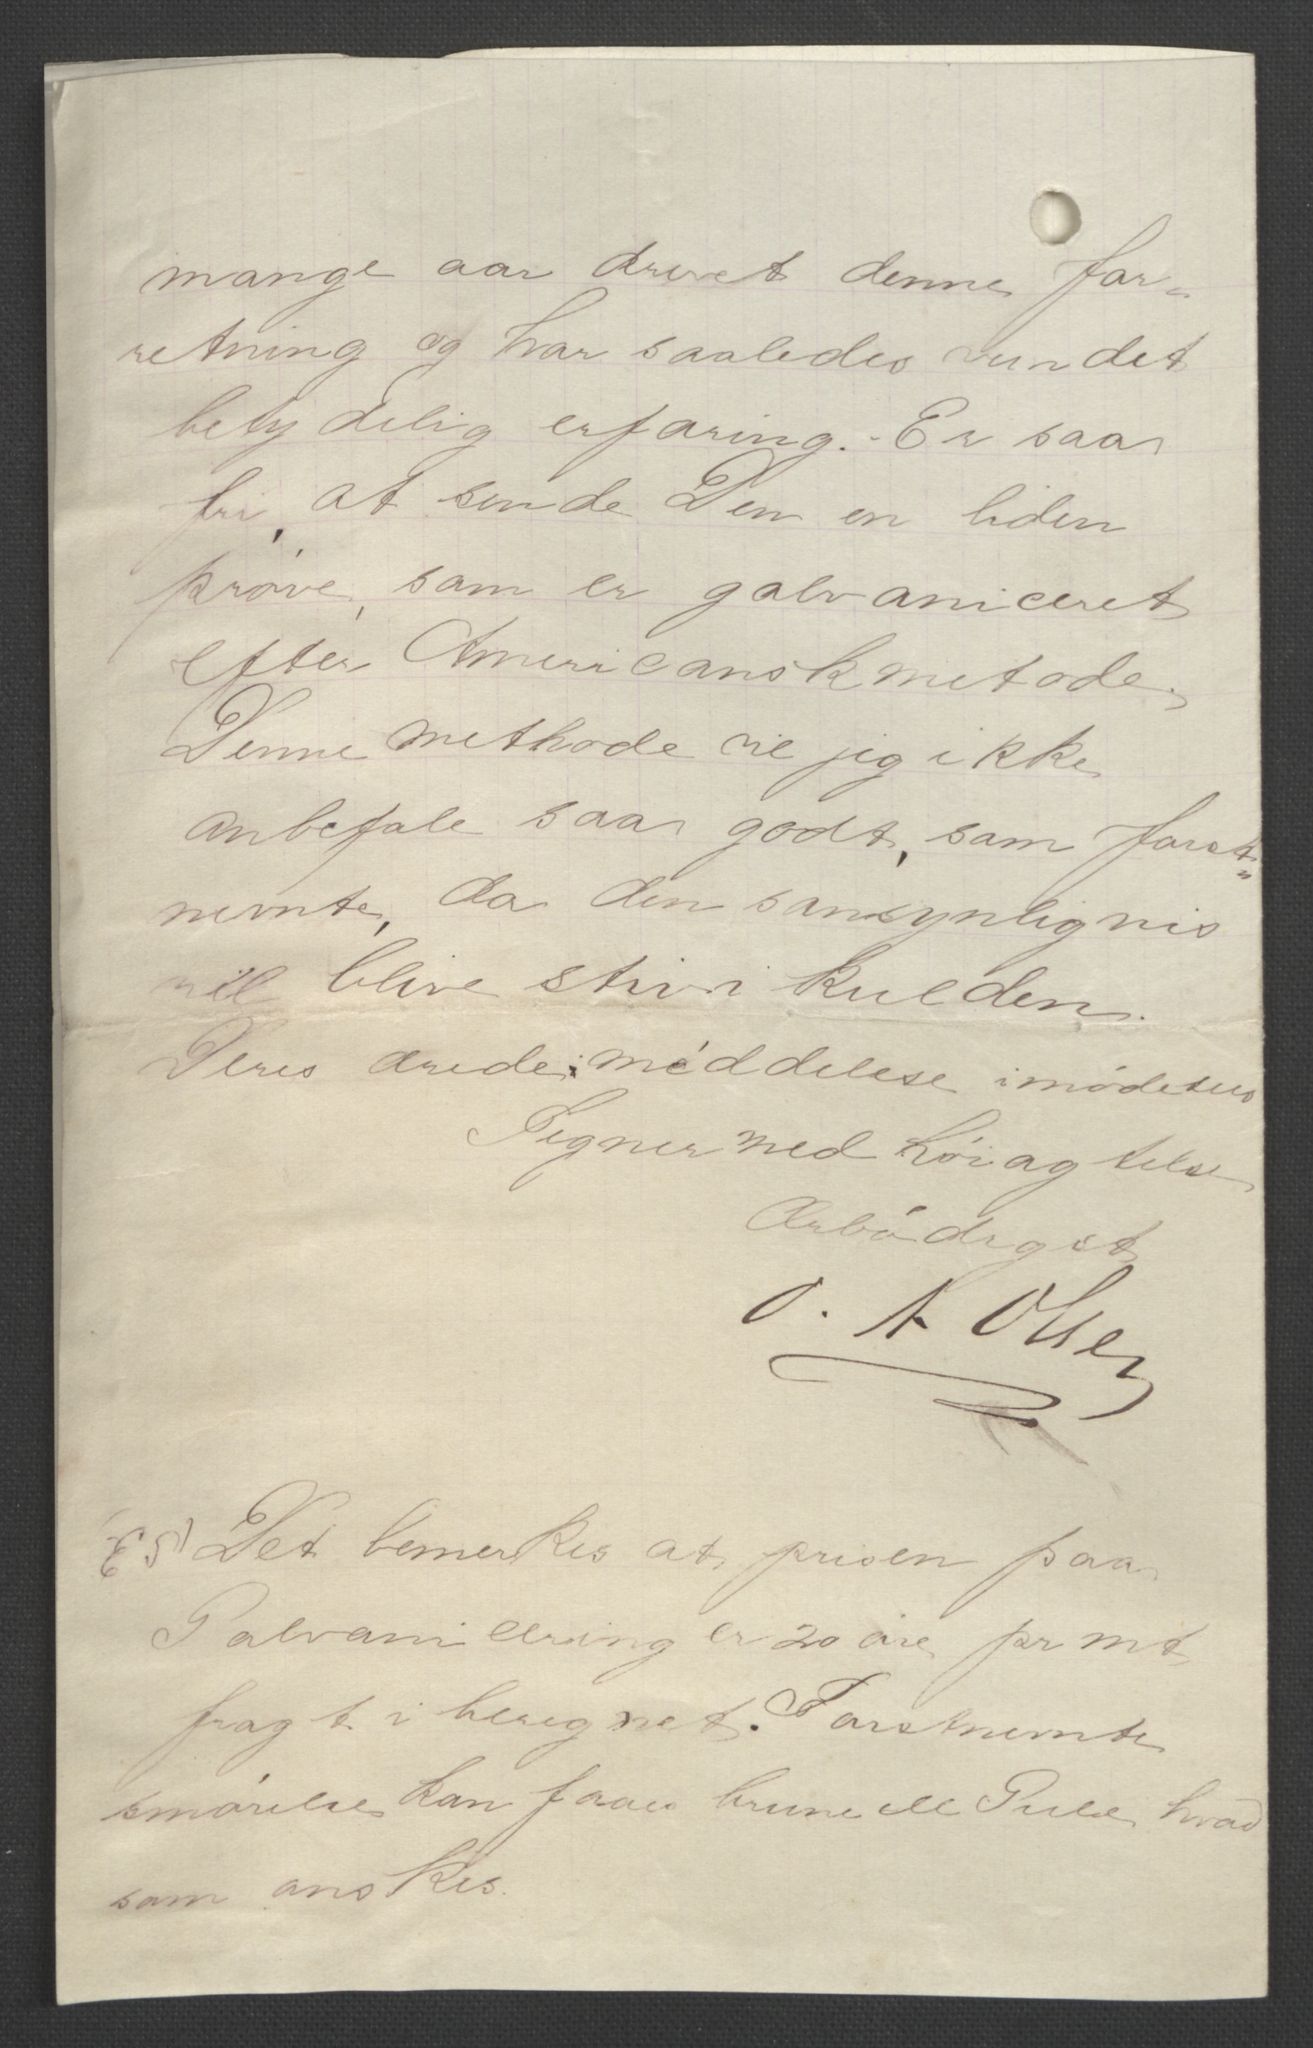 mange aar drevet denne for-
retning og har saaledes vundet
betydelig erfaring. - Er saa
fri, at sende Dem en liden
prøve, som er galvaniceret
efter Americansk metode.
Denne methode vil jeg ikke
anbefale saa godt, som først-
nevnte, da den sansynligvis
vil blive stiv i kulden.
Deres ærede meddelese imødesees
Tegner med høiagtelse
Ærbødigst
O. A Olsen
ES) Det bemerkes at prisen paa
Galvanicering er 20 øre pr mt
fragt iberegnet. Førstnevnte
smørelse kan faaes brune ell Gule hvad
som ønskes.